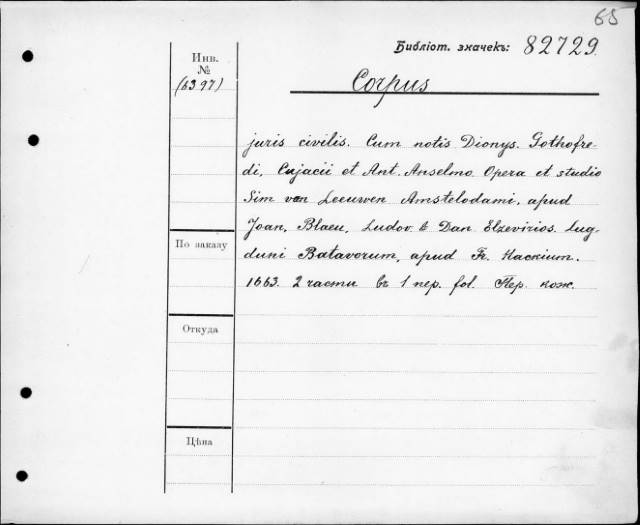 65
Библіот. значекъ: 82729
Инв.
№
(6397)
Corpus
juris civilis. Cum notis Dionys. Gothofre-
di, Cujacii et Ant. Anselmo Opera et studio
Sim van Leeuwen Amstelodami, apud
Joan, Blaeu, Ludov. & Dan Elzevirios. Lug-
duni Batavorum, apud Fr. Hackium.
1663. 2 части въ 1 пер. fol. Пер. кож.
По заказу
Откуда
Цѣна